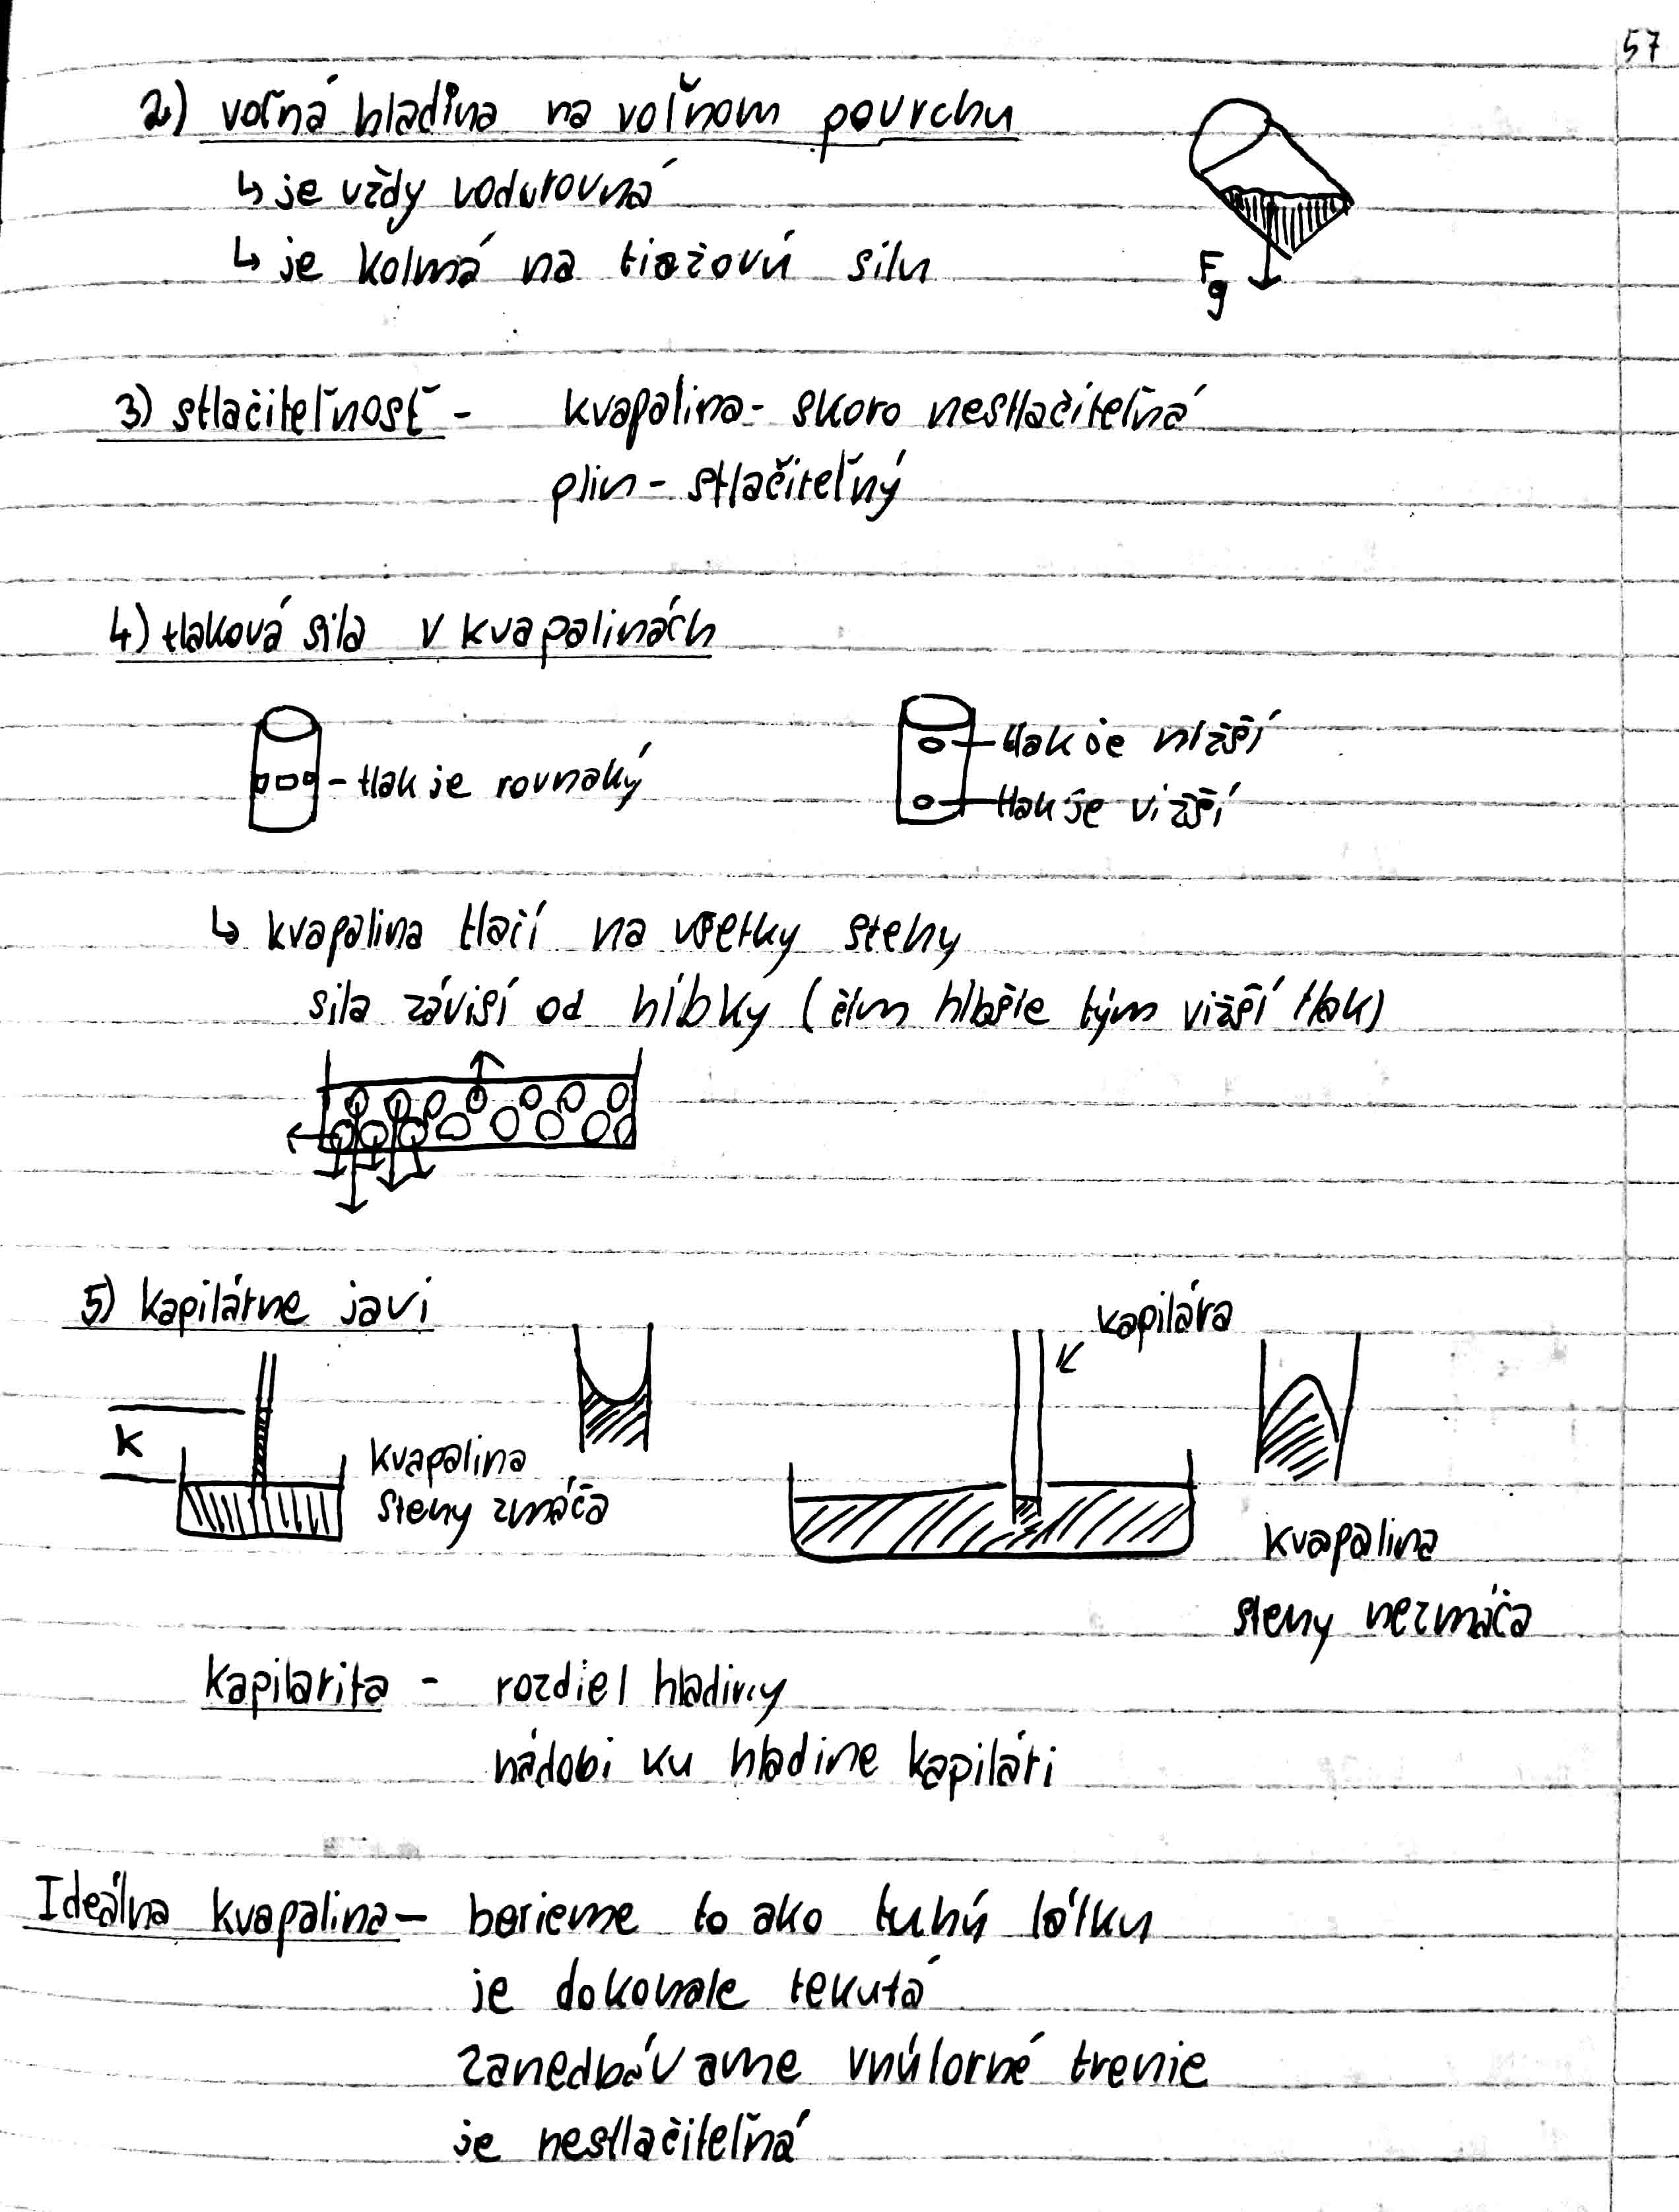 57
2) voľná hladina na voľnom povrchu
↳ je vždy vodorovná
↳ je kolmá na tiažovú silu
F
g
3) stlačiteľnosť - kvapalina - skoro nestlačiteľná
plin - stlačiteľný
4) tlaková sila v kvapalinách
- tlak je rovnaký
tlak je nižší
tlak je vižší
↳ kvapalina tlačí na všetky steny
sila záviší od hĺbky (čím hlbšie tým vižší tlak)
5) kapilárne javi
kapilára
K
kvapalina
steny zmáča
kvapalina
steny nezmáča
kapilarita - rozdiel hladiny
nádobi ku hladine kapilári
Ideálna kvapalina - berieme to ako tuhú látku
je dokonale tekutá
zanedbávame vnútorné trenie
je nestlačiteľná